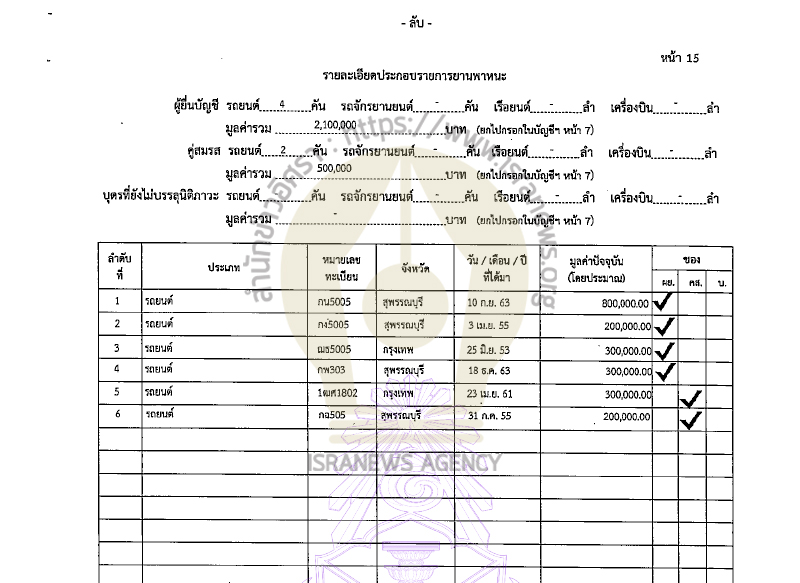 - ลับ -
หน้า 15
รายละเอียดประกอบรายการยานพาหนะ
ผู้ยื่นบัญชี รถยนต์....4....คัน รถจักรยานยนต์....-....คัน เรือยนต์....-....ลำ เครื่องบิน....-....ลำ
มูลค่ารวม ....2,100,000....บาท (ยกไปกรอกในบัญชีฯ หน้า 7)
คู่สมรส รถยนต์....2....คัน รถจักรยานยนต์....-....คัน เรือยนต์....-....ลำ เครื่องบิน....-....ลำ
มูลค่ารวม ....500,000....บาท (ยกไปกรอกในบัญชีฯ หน้า 7)
บุตรที่ยังไม่บรรลุนิติภาวะ รถยนต์....-....คัน รถจักรยานยนต์....-....คัน เรือยนต์....-....ลำ เครื่องบิน....-....ลำ
มูลค่ารวม ....-....บาท (ยกไปกรอกในบัญชีฯ หน้า 7)
ลำดับที่ ประเภท หมายเลขทะเบียน จังหวัด วัน / เดือน / ปี ที่ได้มา มูลค่าปัจจุบัน (โดยประมาณ) ของ
ผย. คส. บ.
1 รถยนต์ กน5005 สุพรรณบุรี 10 ก.ย. 63 800,000.00 ✓
2 รถยนต์ กง5005 สุพรรณบุรี 3 เม.ย. 55 200,000.00 ✓
3 รถยนต์ ฌธ5005 กรุงเทพ 25 มิ.ย. 53 300,000.00 ✓
4 รถยนต์ กพ303 สุพรรณบุรี 18 ธ.ค. 63 300,000.00 ✓
5 รถยนต์ 1ฒศ1802 กรุงเทพ 23 เม.ย. 61 300,000.00 ✓
6 รถยนต์ กฉ505 สุพรรณบุรี 31 ก.ค. 55 200,000.00 ✓
สำนักข่าวอิศรา : https://www.isranews.org
ISRANEWS AGENCY